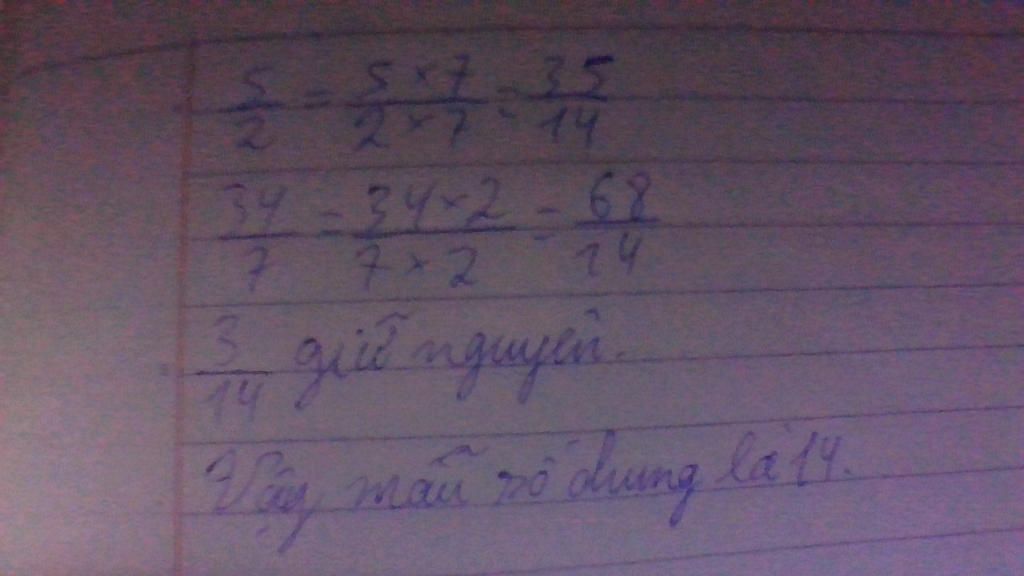 5/2 = 5 × 7 / 2 × 7 = 35/14
34/7 = 34 × 2 / 7 × 2 = 68/14
3/14 giữ nguyên.
Vậy mẫu số chung là 14.